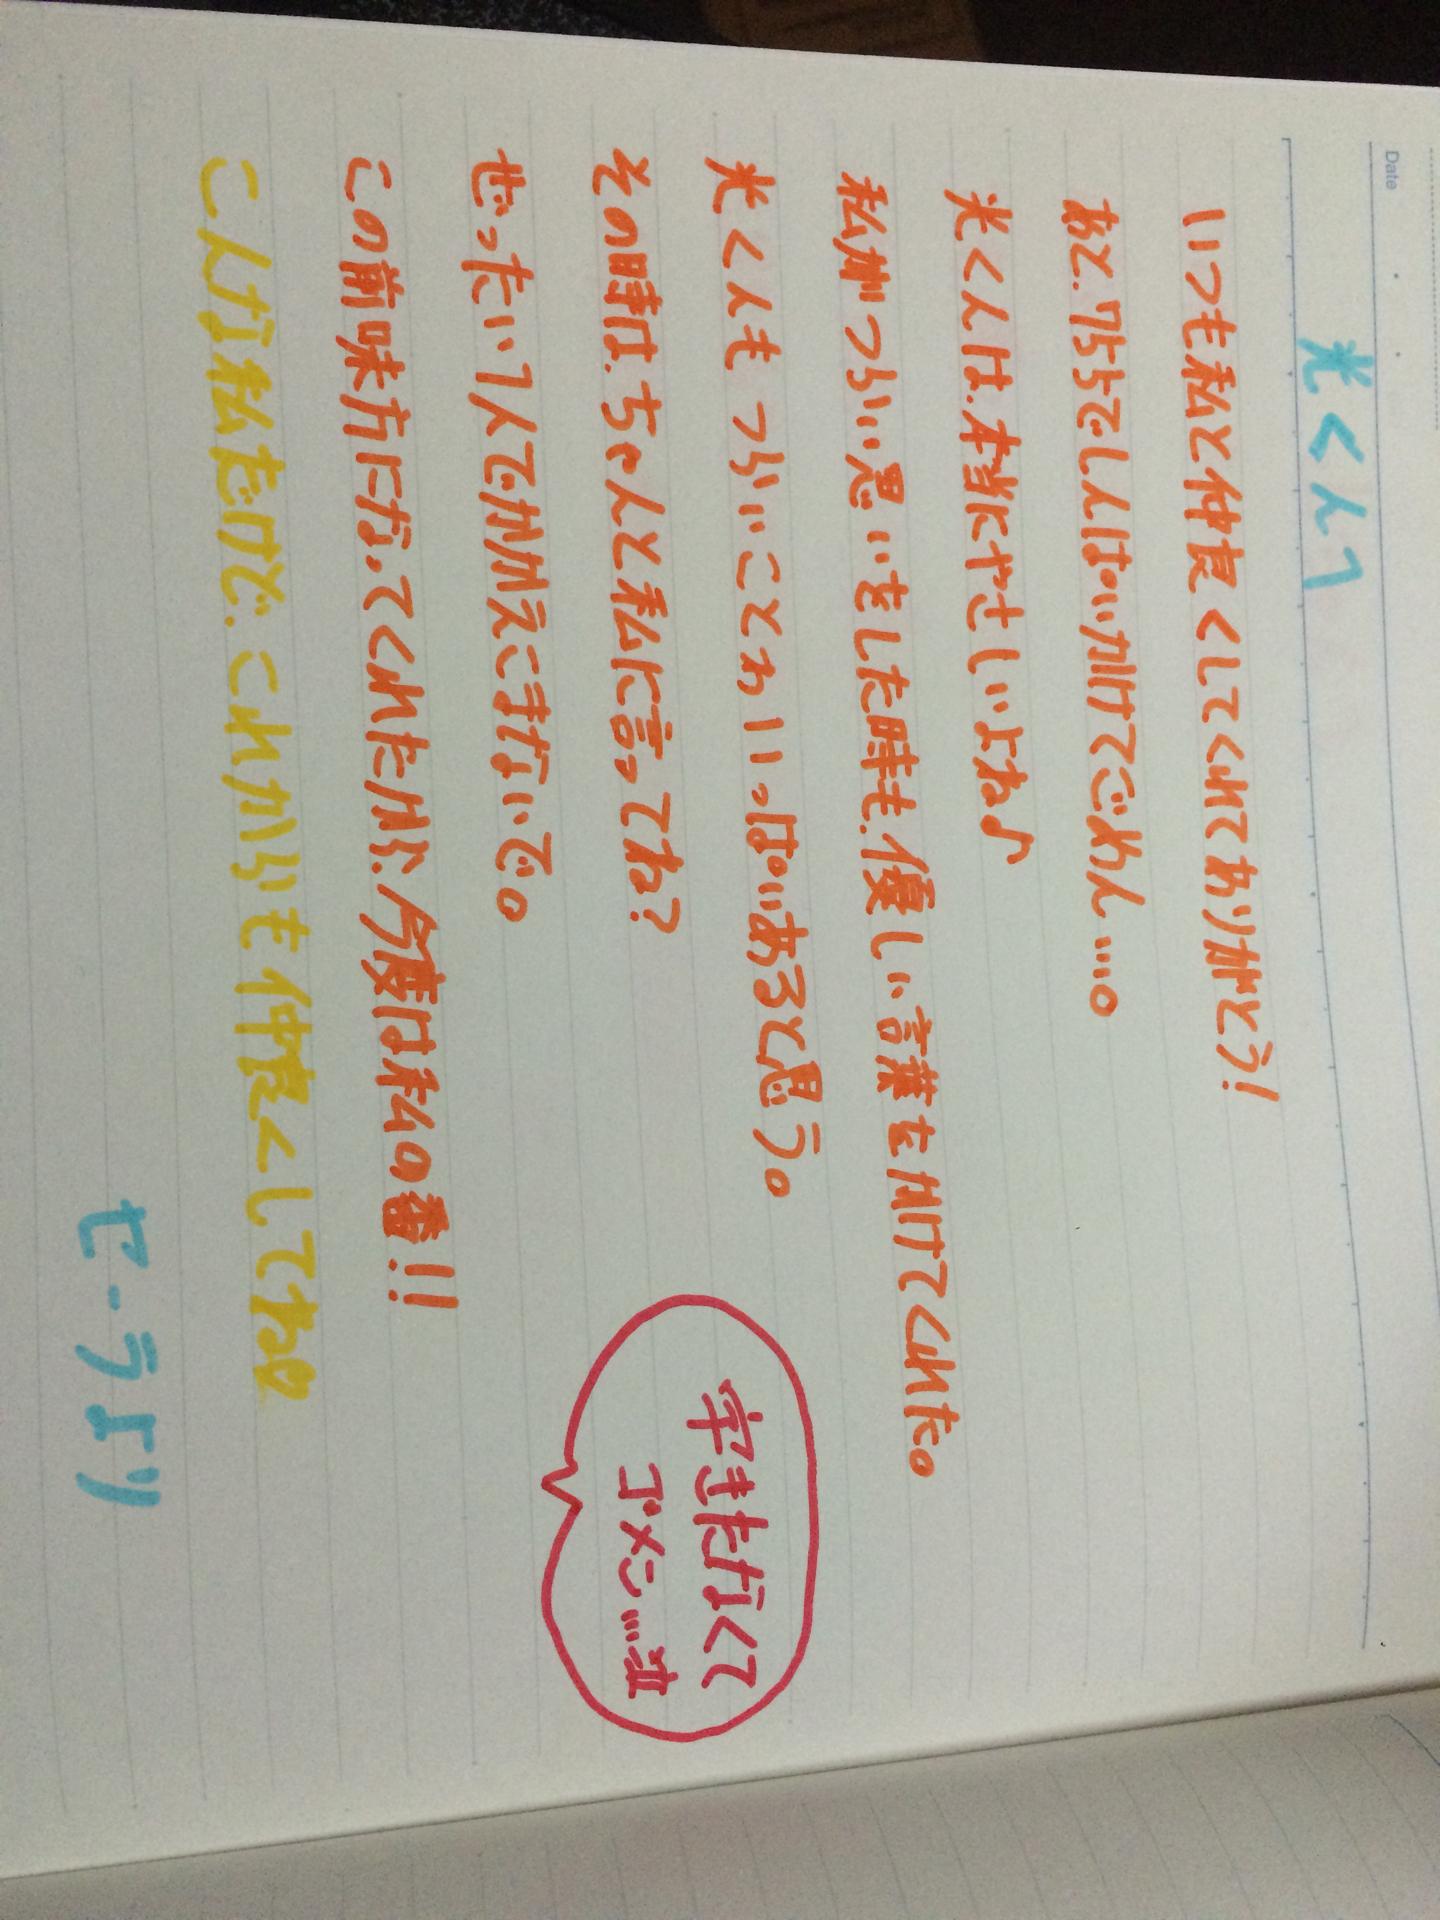 Date
光くんへ
いつも私と仲良くしてくれてありがとう!
あと、7ちちでしんぱいかけてごめん…。
光くんは、本当にやさしいよね♪
私がつらい思いをした時も、優しい言葉をかけてくれた。
光くんもつらいことわいっぱいあると思う。
その時は、ちゃんと私に言ってね?
ぜったい1人でかかえこまないで。
この前味方になってくれたから、今度は私の番!!
こんな私だけど、これからも仲良くしてね
セーラより
字きたなくて
ゴメン…泣